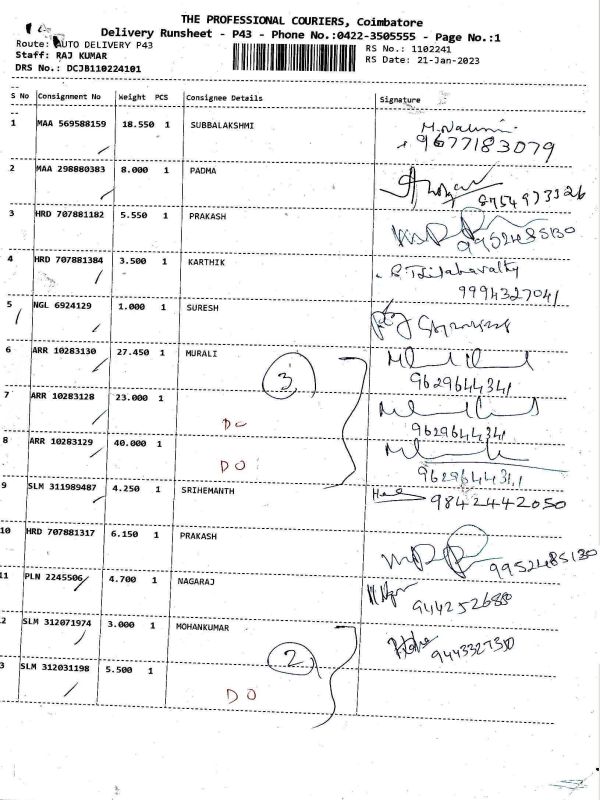 THE PROFESSIONAL COURIERS, Coimbatore
Delivery Runsheet - P43 - Phone No.:0422-3505555 - Page No.:1
Route: AUTO DELIVERY P43
RS No.: 1102241
Staff: RAJ KUMAR
RS Date: 21-Jan-2023
DRS No.: DCJB110224101
S No Consignment No Weight PCS Consignee Details Signature
1 MAA 569588159 18.550 1 SUBBALAKSHMI
9677183079
2 MAA 298880383 8.000 1 PADMA
8754973326
3 HRD 707881182 5.550 1 PRAKASH
9952485130
4 HRD 707881384 3.500 1 KARTHIK
9994327041
5 NGL 6924129 1.000 1 SURESH
6 ARR 10283130 27.450 1 MURALI
3
9629644341
7 ARR 10283128 23.000 1
DO
9629644341
8 ARR 10283129 40.000 1
DO
9629644341
9 SLM 311989487 4.250 1 SRIHEMANTH
9842442050
10 HRD 707881317 6.150 1 PRAKASH
9952485130
11 PLN 2245506 4.700 1 NAGARAJ
2 SLM 312071974 3.000 1 MOHANKUMAR
2
3 SLM 312031198 5.500 1
DO